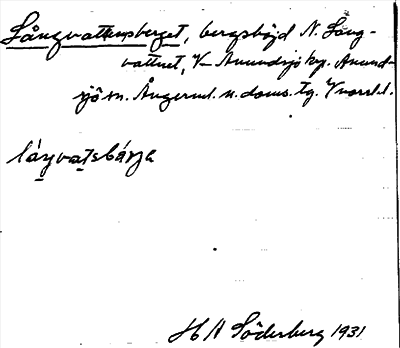 Långvattensberget, bergshöjd N. Lång-
vattnet, V— Anundsjö by. Anund-
sjö sn. Ångerml. n. doms. tg. V norrl. l.
láŋvatsbárja
H A Söderberg 1931